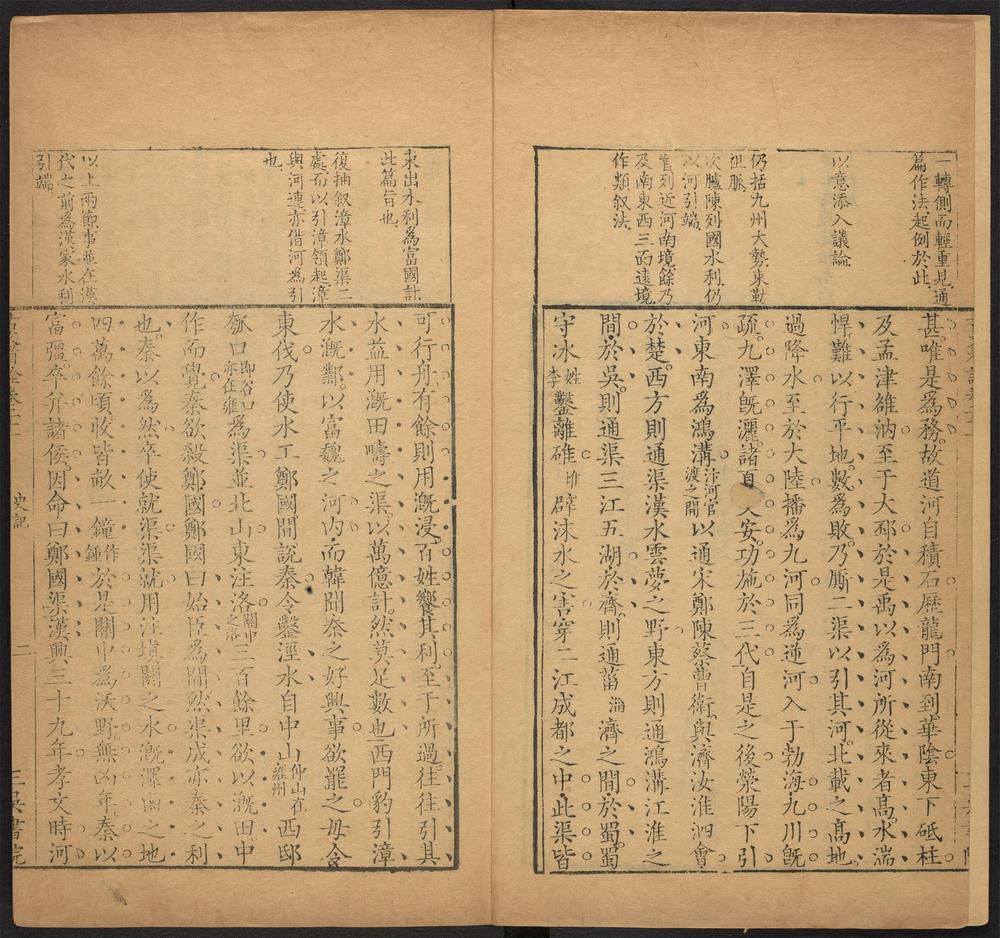 一轉側而輕重見通
篇作法起例於此
以意添入議論
仍括九州大勢東勒
次臚陳列國水利仍
以河引端
首列近河南境餘乃
及南東西三面遠境
作類叙法
甚唯是爲務故道河自積石歷龍門南到華陰東下砥柱
及孟津雒汭至于大邳於是禹以爲河所從來者髙水湍
悍難以行平地數爲敗乃厮二渠以引其河北載之髙地
過降水至於大陸播爲九河同爲逆河入于勃海九川旣
疏九澤旣灑諸夏乂安功施於三代自是之後滎陽下引
河東南爲鴻溝汴河官渡之間以通宋鄭陳蔡曹衛與濟汝淮泗會
於楚西方則通渠漢水雲夢之野東方則通鴻溝江淮之
間於吳則通渠三江五湖於齊則通菑淄濟之間於蜀蜀
守冰姓李鑿離碓堆辟沫水之害穿二江成都之中此渠皆
束出水利爲富國計
此篇旨也
復抽叙漳水鄭渠二
處而以引漳領起漳
與河連亦借河爲引
也
以上兩節事並在漢
代之前爲漢家水利
引端
可行舟有餘則用漑浸百姓饗其利至于所過往往引其
水益用漑田疇之渠以萬億計然莫足數也西門豹引漳
水漑鄴以富魏之河内而韓聞秦之好興事欲罷之毋令
東伐乃使水工鄭國間說秦令鑿涇水自中山仲山在雍州西邸
瓠口即谷口亦在雍爲渠並北山東注洛關中之洛三百餘里欲以漑田中
作而覺秦欲殺鄭國鄭國曰始臣爲間然渠成亦秦之利
也秦以爲然卒使就渠渠就用注填閼之水漑澤鹵之地
四萬餘頃收皆畝一鐘作鍾於是關中爲沃野無凶年秦以
富彊卒并諸侯因命曰鄭國渠漢興三十九年孝文時河
史記
二
三吳書院